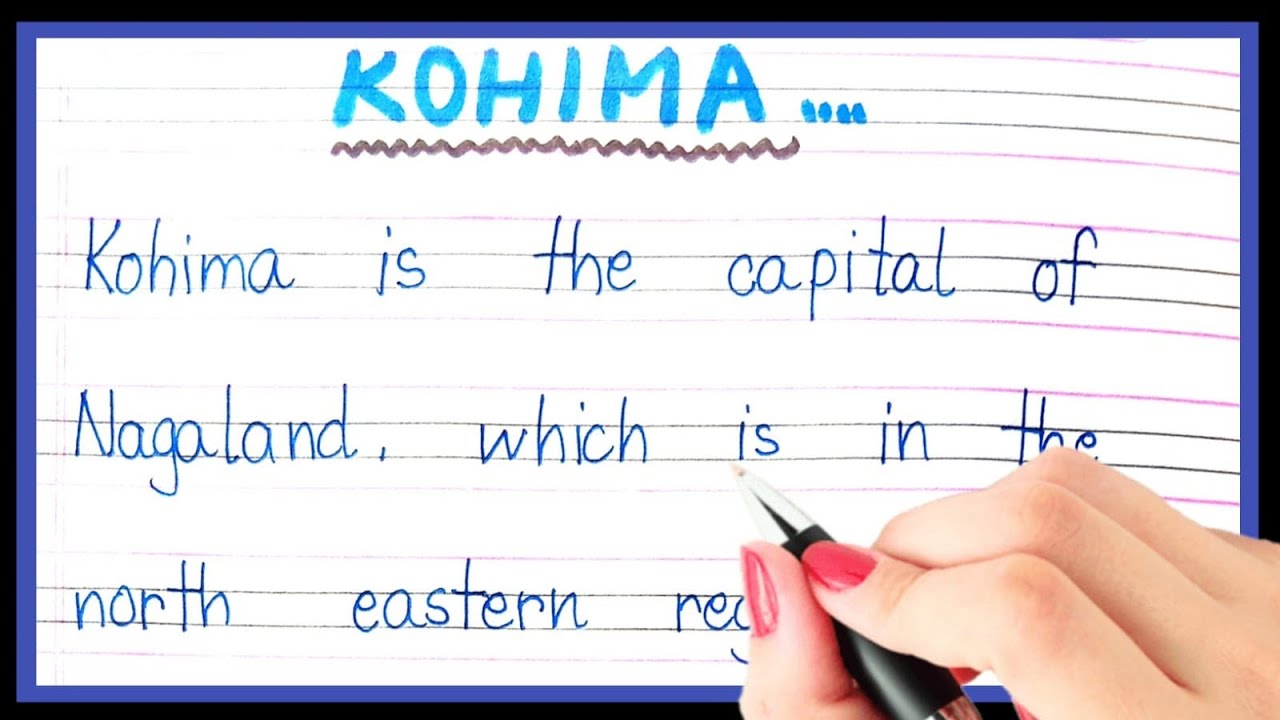 KOHIMA ....
Kohima is the capital of
Nagaland, which is in the
north eastern